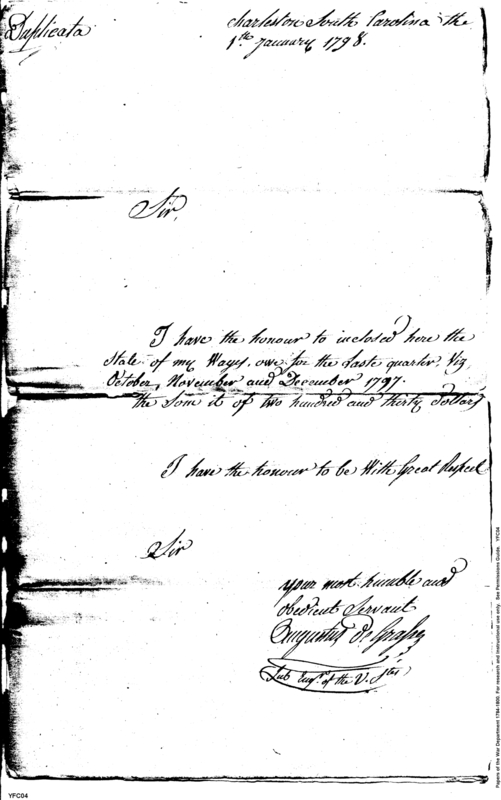 Duplicata
Charleston South Carolina the
1th January 1798.
Sir,
I have the honour to inclosed here the
State of my Wages, owe for the Laste quarter Viz,
October, November and December 1797.
the Som it of two hundred and thirty Dollars
I have the honour to be With Great Respect
Sir
your most humble and
obedient Servant
Augustus De Grasse
Sub Engr. of the U. Stes
Papers of the War Department 1784-1800. For research and instructional use only. See Permissions Guide. YFC04
YFC04